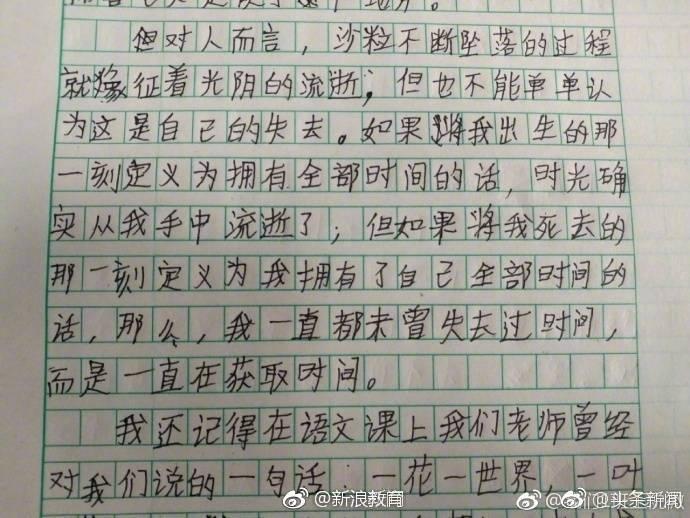 但对人而言，沙粒不断坠落的过程
就像征着光阴的流逝，但也不能单单认
为这是自己的失去。如果将我出生的那
一刻定义为拥有全部时间的话，时光确
实从我手中流逝了；但如果将我死去的
那一刻定义为我拥有了自己全部时间的
话，那么，我一直都未曾失去过时间，
而是一直在获取时间。
我还记得在语文课上我们老师曾经
对我们说的一句话：一花一世界，一叶
@新浪教育
@头条新闻